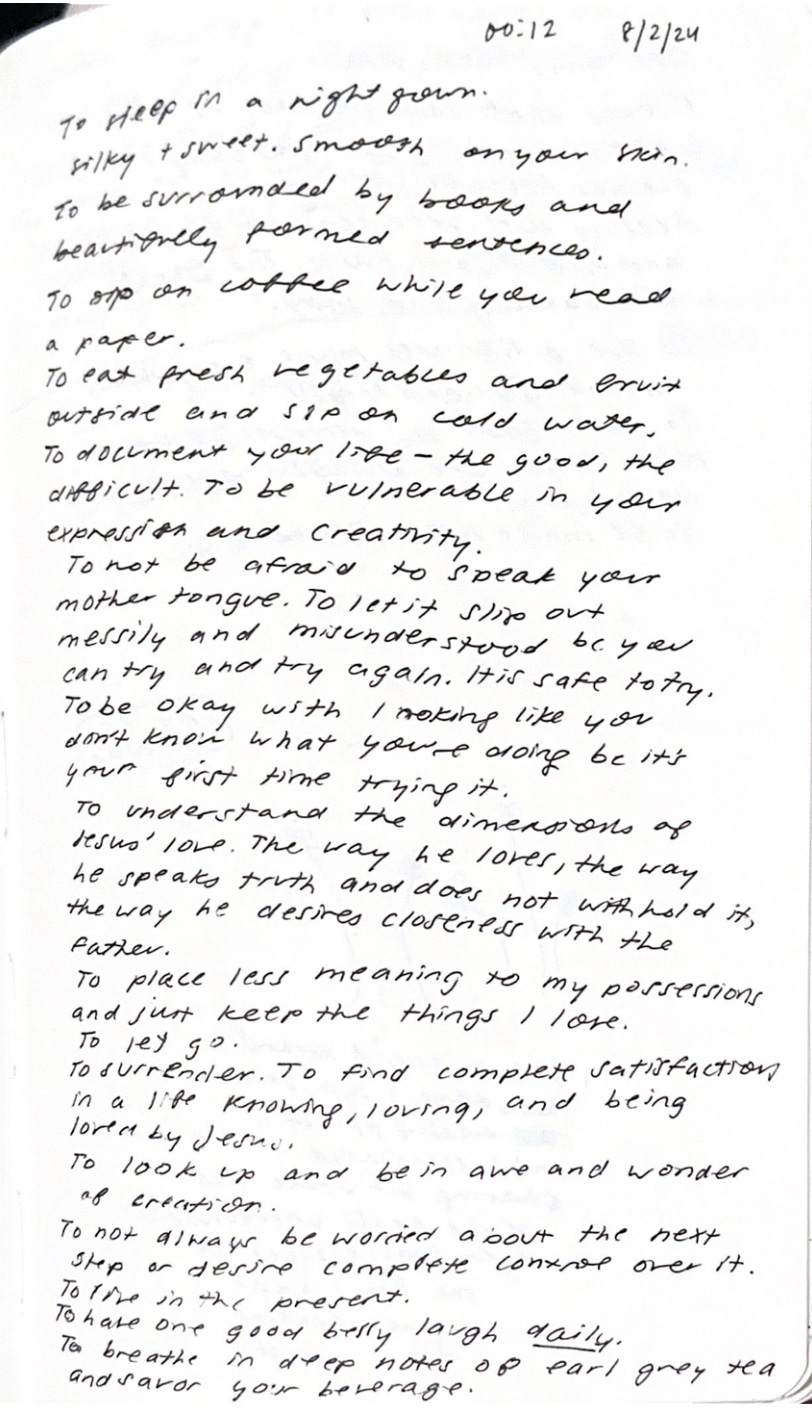 00:12 8/2/24
To sleep in a night gown.
silky + sweet. Smooth on your skin.
To be surrounded by books and
beautifully formed sentences.
To sip on coffee while you read
a paper.
To eat fresh vegetables and fruit
outside and sip on cold water.
To document your life - the good, the
difficult. To be vulnerable in your
expression and creativity.
To not be afraid to speak your
mother tongue. To let it slip out
messily and misunderstood bc you
can try and try again. It is safe to try.
To be okay with looking like you
don't know what you're doing bc it's
your first time trying it.
To understand the dimensions of
Jesus' love. The way he loves, the way
he speaks truth and does not withhold it,
the way he desires closeness with the
Father.
To place less meaning to my possessions
and just keep the things I love.
To let go.
To surrender. To find complete satisfaction
in a life knowing, loving, and being
loved by Jesus.
To look up and be in awe and wonder
of creation.
To not always be worried about the next
step or desire complete control over it.
To live in the present.
To have one good belly laugh daily.
To breathe in deep notes of earl grey tea
and savor your beverage.